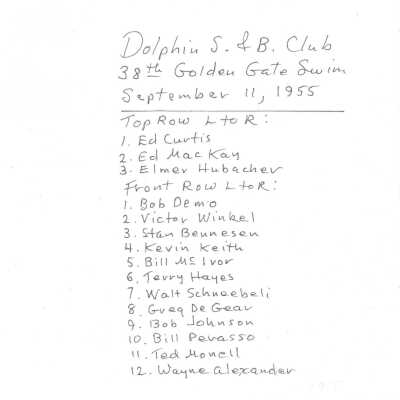 Dolphin S. & B. Club
38th Golden Gate Swim
September 11, 1955
Top Row L to R:
1. Ed Curtis
2. Ed MacKay
3. Elmer Hubacher
Front Row L to R:
1. Bob Demo
2. Victor Winkel
3. Stan Bennesen
4. Kevin Keith
5. Bill McIvor
6. Terry Hayes
7. Walt Schneebeli
8. Greg De Gear
9. Bob Johnson
10. Bill Perasso
11. Ted Monell
12. Wayne Alexander